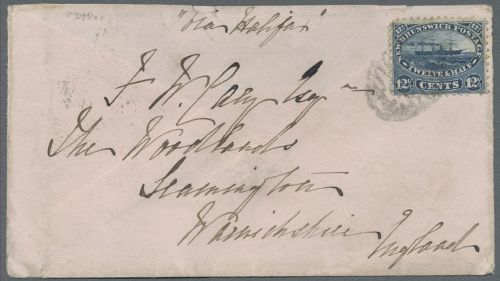 "Via Halifax"
NEW BRUNSWICK POSTAGE
TWELVE & HALF
12½ CENTS 12½
F W. Cary Esq
The Woodlands
Leamington
Warwickshire
England